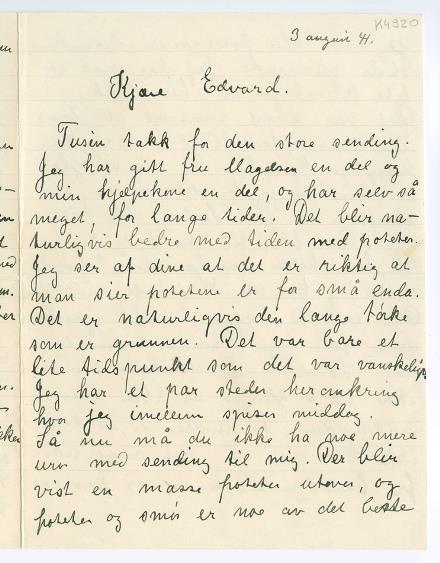 K4920
3 august 41.
Kjære Edvard.
Tusen takk for den store sending.
Jeg har gitt fru Magelsen en del og
min hjelpekone en del, og har selv så
meget, for lange tider. Det blir na-
turligvis bedre med tiden med poteter.
Jeg ser af dine at det er riktig at
man sier potetene er for små enda.
Det er naturligvis den lange tørke
som er grunnen. Det var bare et
lite tidspunkt som det var vanskeligt
Jeg har et par steder heromkring
hvor jeg imellem spiser middag.
Så nu må du ikke ha noe mere
uro med sending til mig. Der blir
vist en masse poteter utover, og
poteter og smør er noe av det beste